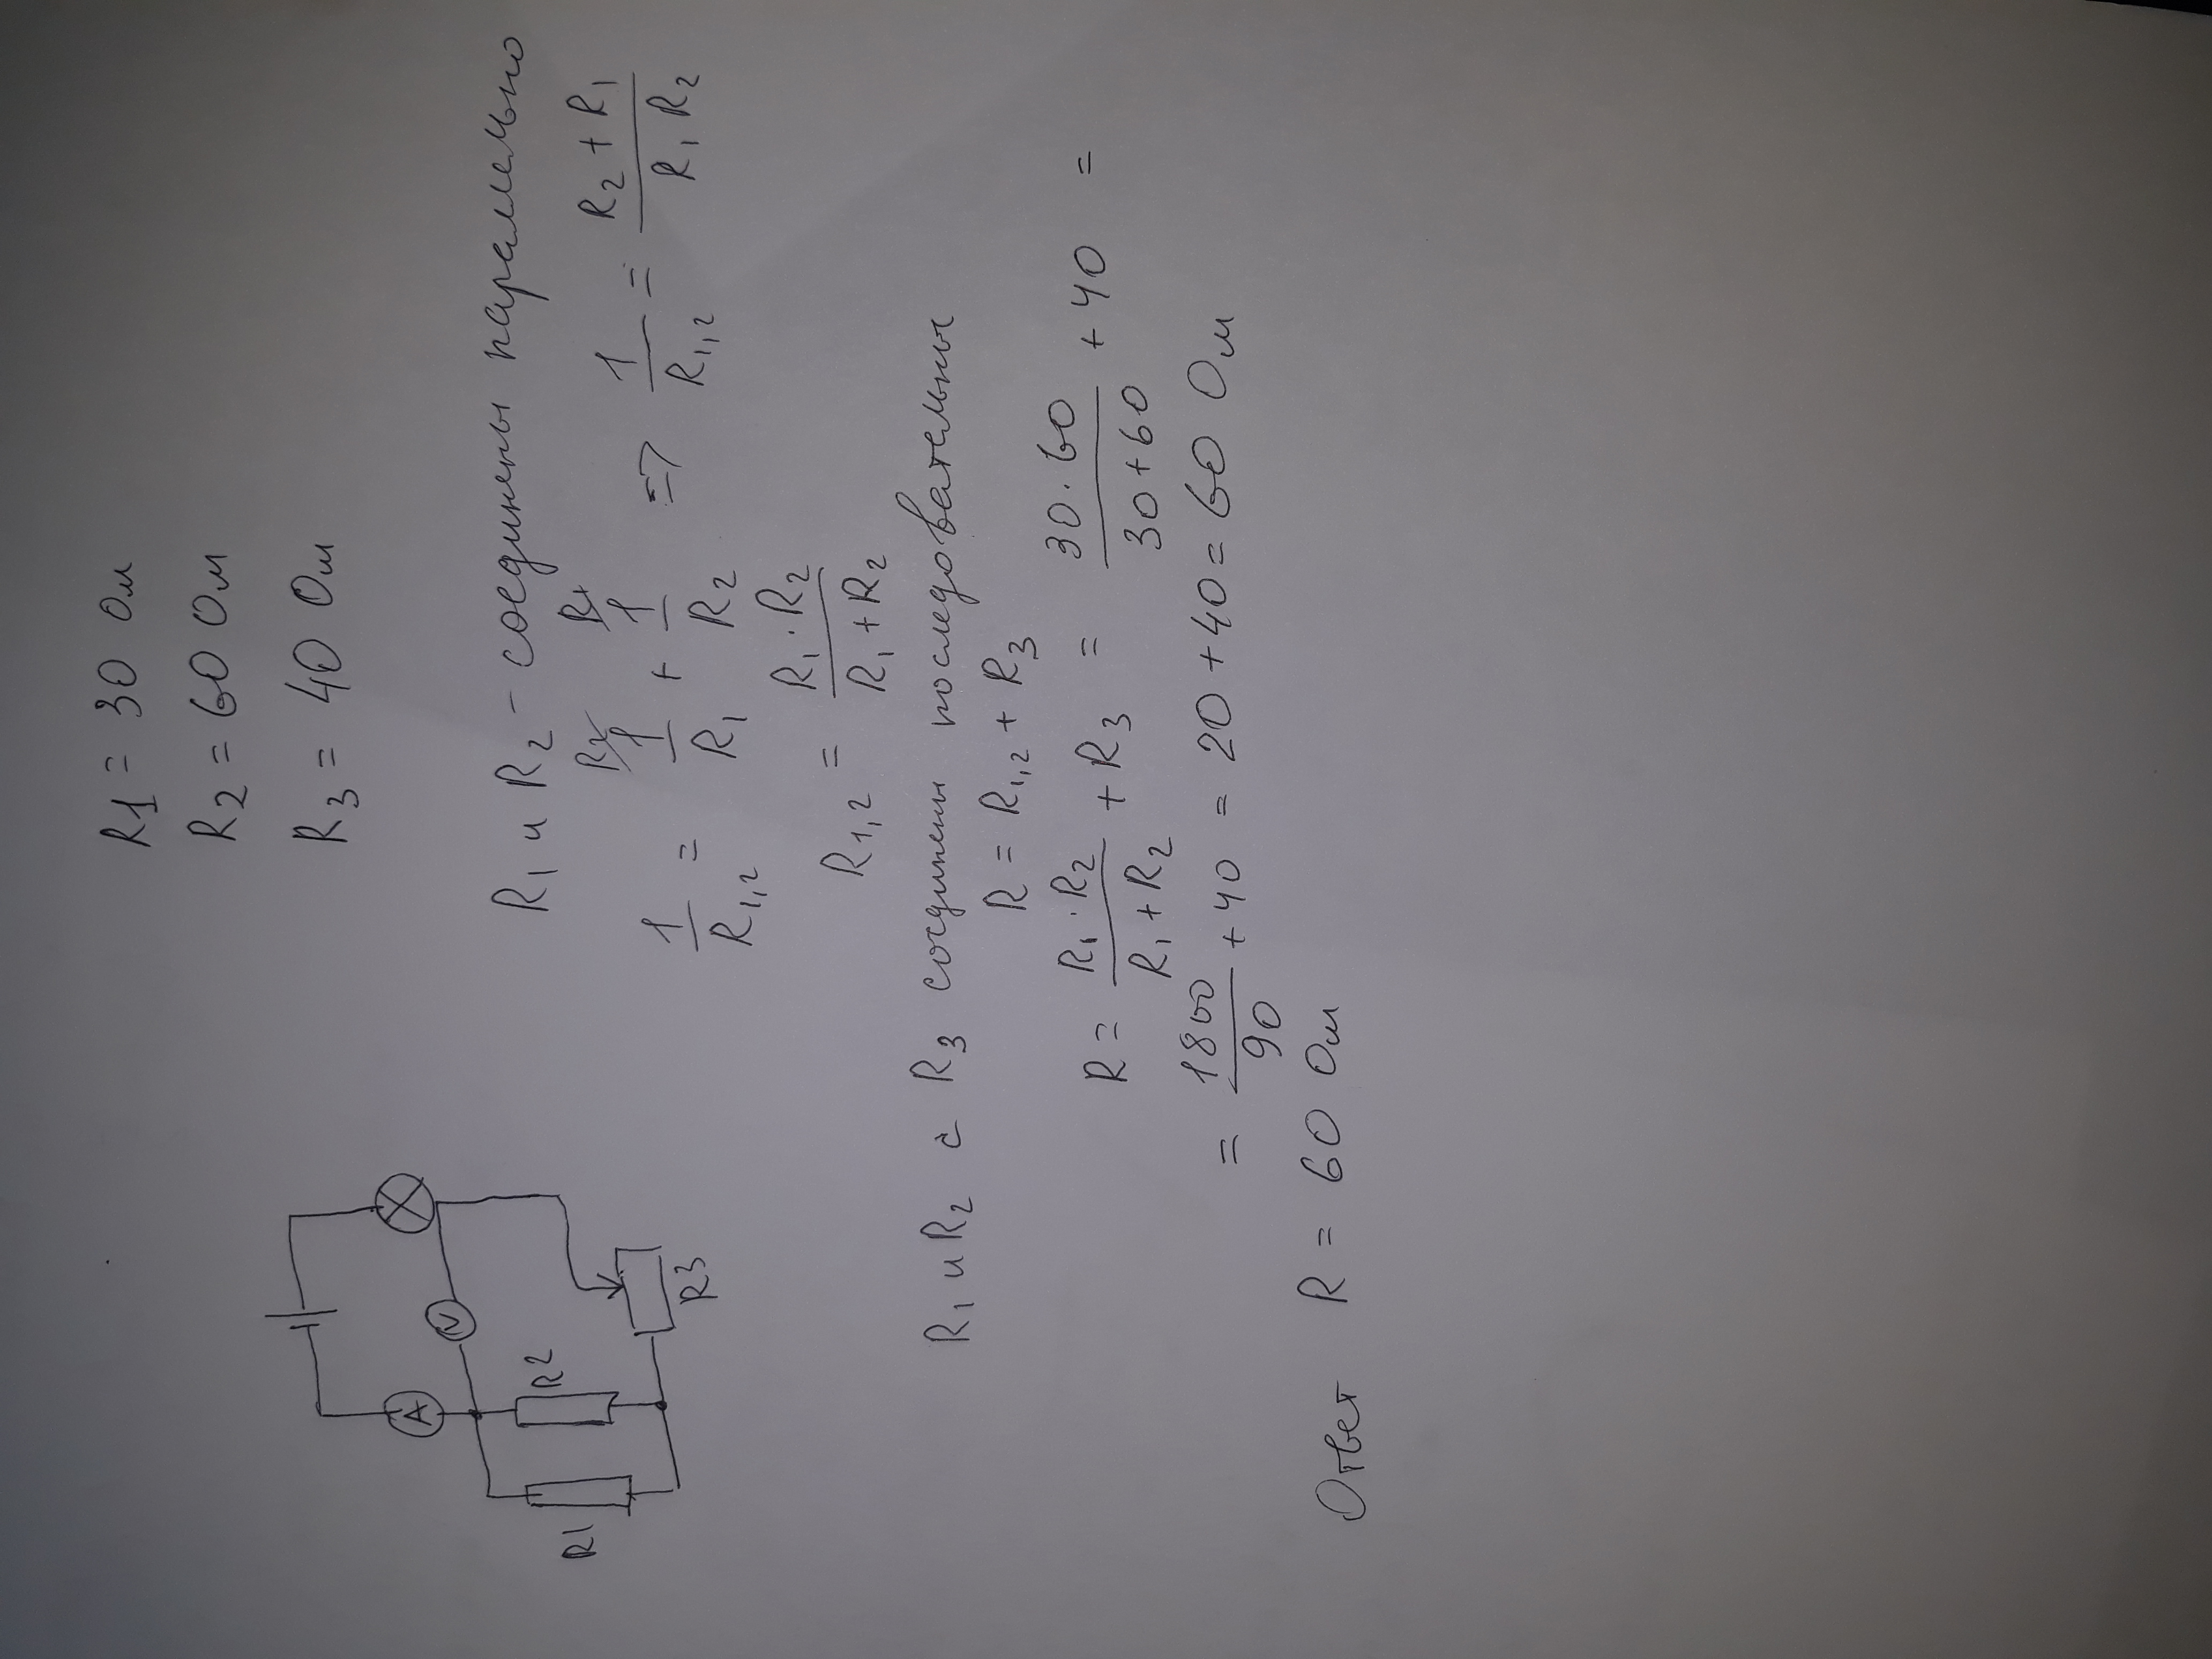 A
V
R2
R1
R3
R1 = 30 Ом
R2 = 60 Ом
R3 = 40 Ом
R1 и R2 - соединены паралельно
1/R1,2 = 1/R1 + 1/R2 => 1/R1,2 = (R2 + R1)/(R1 R2)
R1,2 = (R1 · R2)/(R1 + R2)
R1 и R2 с R3 соединены последовательны
R = R1,2 + R3
R = (R1 · R2)/(R1 + R2) + R3 = (30 · 60)/(30 + 60) + 40 =
= 1800/90 + 40 = 20 + 40 = 60 Ом
Ответ R = 60 Ом